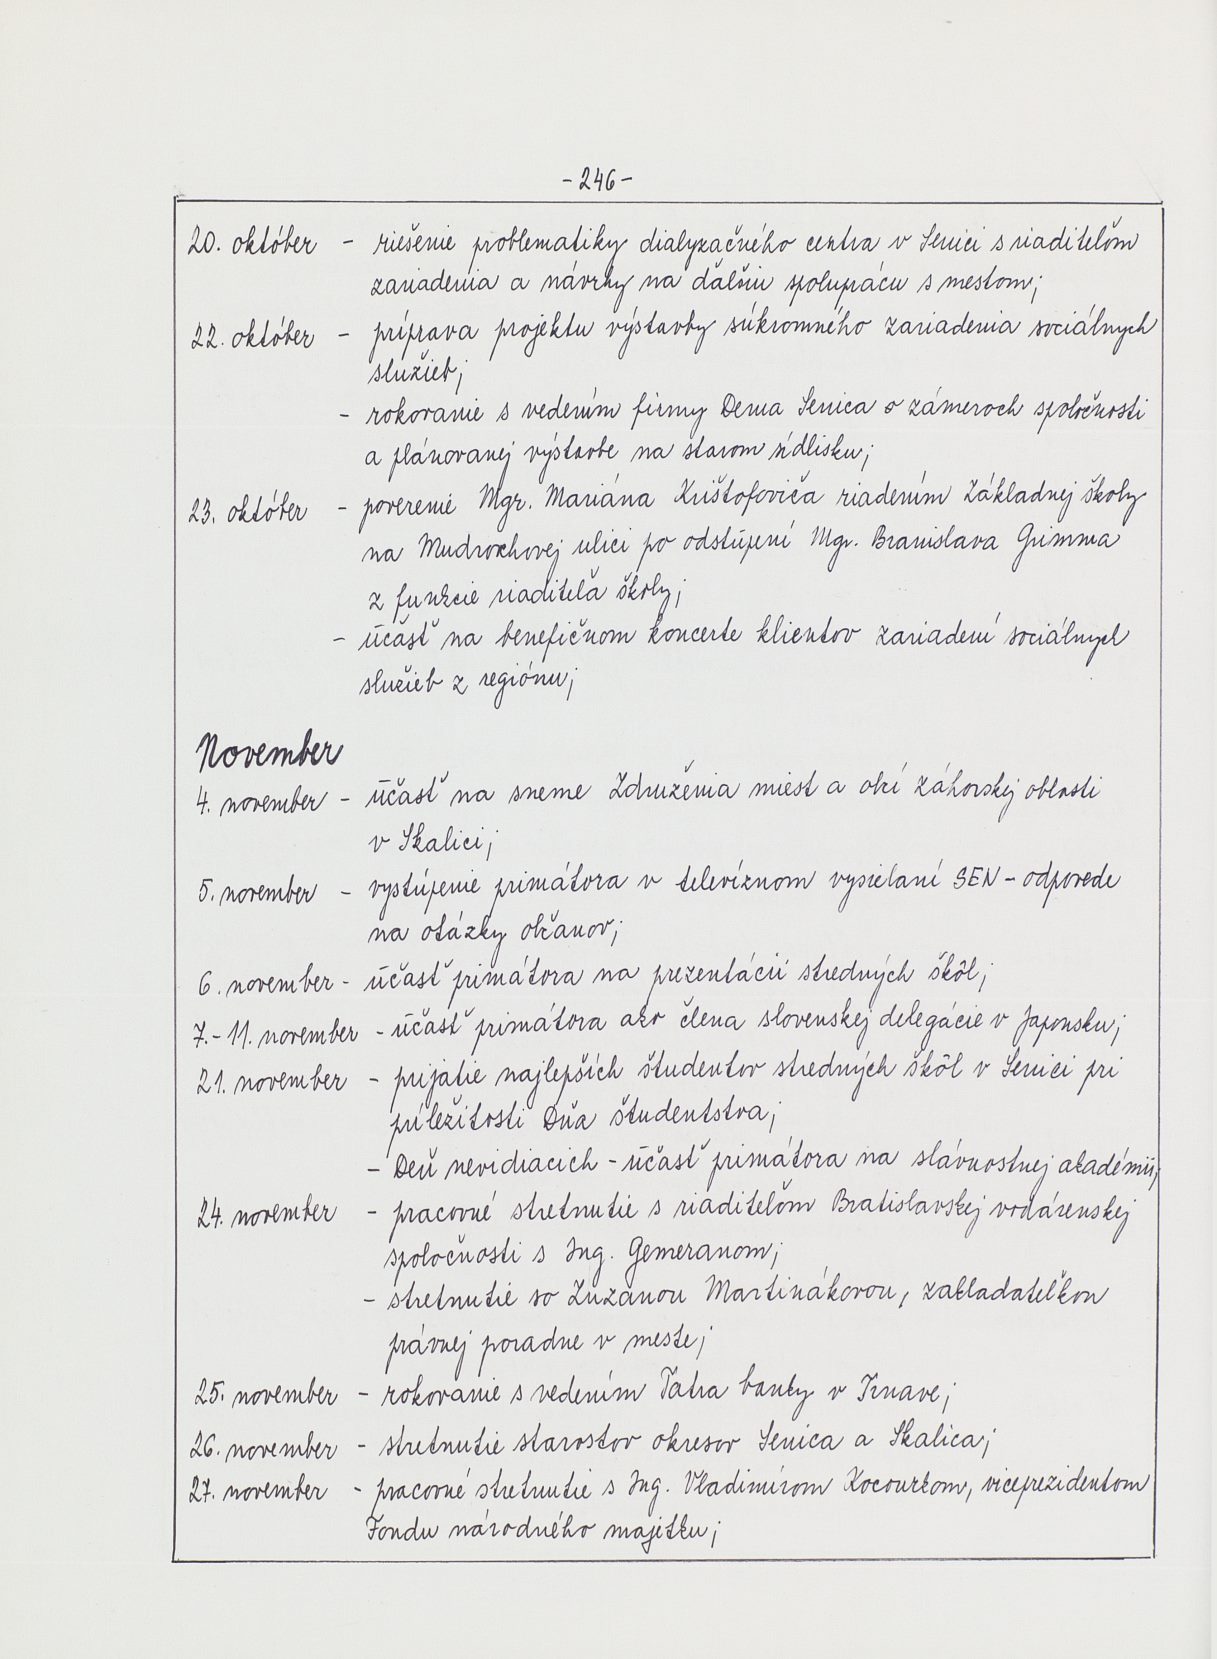 - 246 -
20. október - riešenie problematiky dialyzačného centra v Senici s riaditeľom
zariadenia a návrhy na ďalšiu spoluprácu s mestom;
22. október - príprava projektu výstavby súkromného zariadenia sociálnych
služieb;
- rokovanie s vedením firmy Dema Senica o zámeroch spoločnosti
a plánovanej výstavbe na starom sídlisku;
23. október - poverenie Mgr. Mariána Krištofoviča riadením Základnej školy
na Mudrochovej ulici po odstúpení Mgr. Branislava Grimma
z funkcie riaditeľa školy;
- účasť na benefičnom koncerte klientov zariadení sociálnych
služieb z regiónu;
November
4. november - účasť na sneme Združenia miest a obcí záhorskej oblasti
v Skalici;
5. november - vystúpenie primátora v televíznom vysielaní SEN - odpovede
na otázky občanov;
6. november - účasť primátora na prezentácii stredných škôl;
7. - 11. november - účasť primátora ako člena slovenskej delegácie v Japonsku;
21. november - prijatie najlepších študentov stredných škôl v Senici pri
príležitosti Dňa študentstva;
- Deň nevidiacich - účasť primátora na slávnostnej akadémii;
24. november - pracovné stretnutie s riaditeľom Bratislavskej vodárenskej
spoločnosti s Ing. Gemeranom;
- stretnutie so Zuzanou Martinákovou, zakladateľkou
právnej poradne v meste;
25. november - rokovanie s vedením Tatra banky v Trnave;
26. november - stretnutie starostov okresov Senica a Skalica;
27. november - pracovné stretnutie s Ing. Vladimírom Kocourkom, viceprezidentom
Fondu národného majetku;